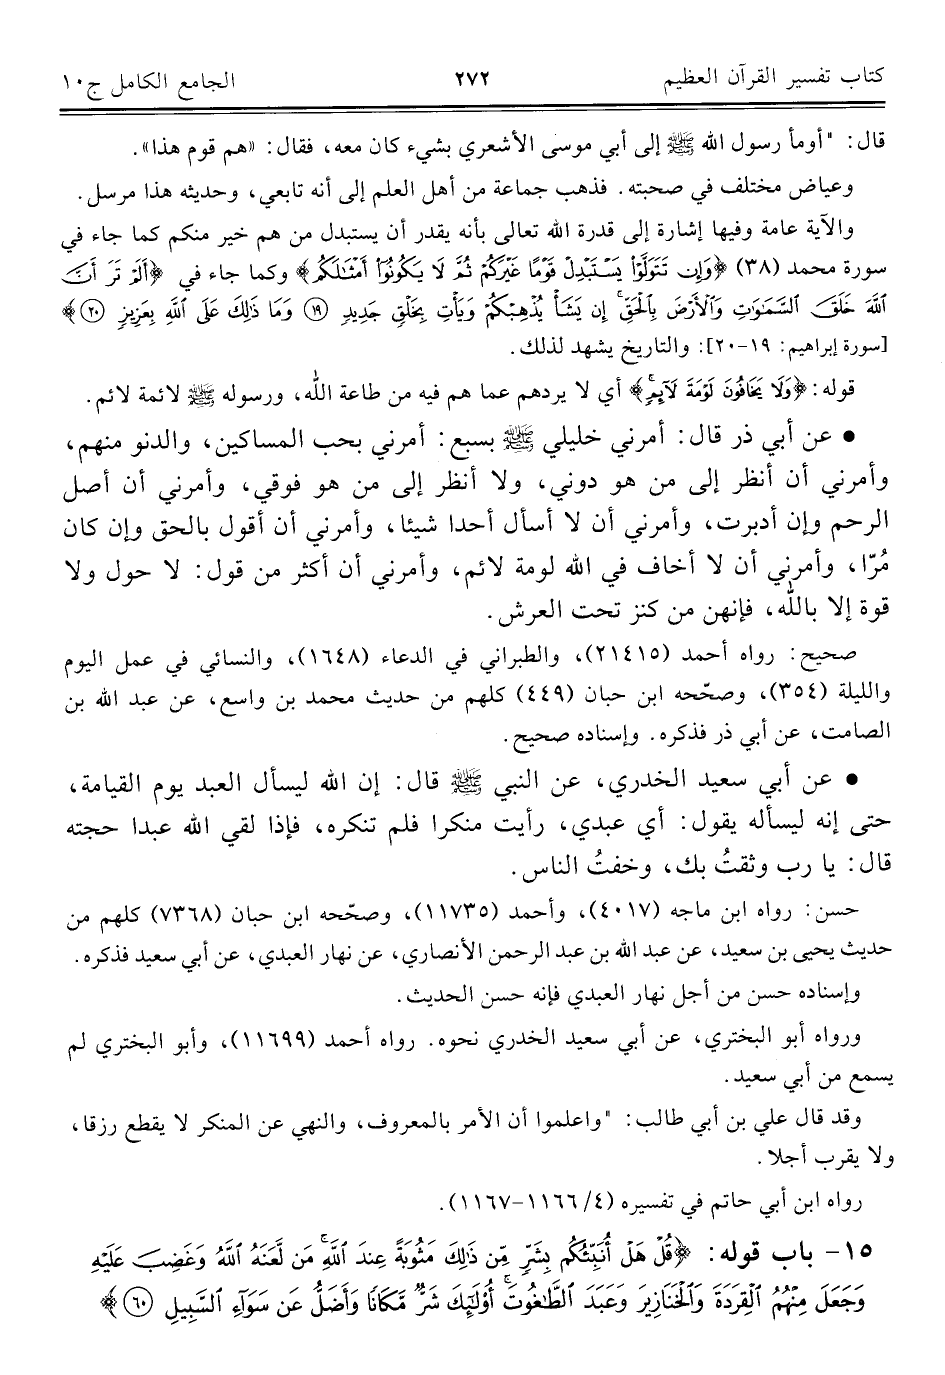 كتاب تفسير القرآن العظيم ٢٧٢ الجامع الكامل ج١٠
قال: "أومأ رسول الله ﷺ إلى أبي موسى الأشعري بشيء كان معه، فقال: «هم قوم هذا».
وعياض مختلف في صحبته. فذهب جماعة من أهل العلم إلى أنه تابعي، وحديثه هذا مرسل.
والآية عامة وفيها إشارة إلى قدرة الله تعالى بأنه يقدر أن يستبدل من هم خير منكم كما جاء في
سورة محمد (٣٨) ﴿وَإِن تَتَوَلَّوْا۟ يَسْتَبْدِلْ قَوْمًا غَيْرَكُمْ ثُمَّ لَا يَكُونُوٓا۟ أَمْثَـٰلَكُم﴾ وكما جاء في ﴿أَلَمْ تَرَ أَنَّ
ٱللَّهَ خَلَقَ ٱلسَّمَـٰوَٰتِ وَٱلْأَرْضَ بِٱلْحَقِّ ۚ إِن يَشَأْ يُذْهِبْكُمْ وَيَأْتِ بِخَلْقٍ جَدِيدٍ ⑲ وَمَا ذَٰلِكَ عَلَى ٱللَّهِ بِعَزِيزٍ ⑳﴾
[سورة إبراهيم: ١٩-٢٠]: والتاريخ يشهد لذلك.
قوله: ﴿وَلَا يَخَافُونَ لَوْمَةَ لَآئِمٍ ۚ﴾ أي لا يردهم عما هم فيه من طاعة الله، ورسوله ﷺ لائمة لائم.
• عن أبي ذر قال: أمرني خليلي ﷺ بسبع: أمرني بحب المساكين، والدنو منهم،
وأمرني أن أنظر إلى من هو دوني، ولا أنظر إلى من هو فوقي، وأمرني أن أصل
الرحم وإن أدبرت، وأمرني أن لا أسأل أحدا شيئا، وأمرني أن أقول بالحق وإن كان
مُرّا، وأمرني أن لا أخاف في الله لومة لائم، وأمرني أن أكثر من قول: لا حول ولا
قوة إلا بالله، فإنهن من كنز تحت العرش.
صحيح: رواه أحمد (٢١٤١٥)، والطبراني في الدعاء (١٦٤٨)، والنسائي في عمل اليوم
والليلة (٣٥٤)، وصحّحه ابن حبان (٤٤٩) كلهم من حديث محمد بن واسع، عن عبد الله بن
الصامت، عن أبي ذر فذكره. وإسناده صحيح.
• عن أبي سعيد الخدري، عن النبي ﷺ قال: إن الله ليسأل العبد يوم القيامة،
حتى إنه ليسأله يقول: أي عبدي، رأيت منكرا فلم تنكره، فإذا لقي الله عبدا حجته
قال: يا رب وثقتُ بك، وخفتُ الناس.
حسن: رواه ابن ماجه (٤٠١٧)، وأحمد (١١٧٣٥)، وصحّحه ابن حبان (٧٣٦٨) كلهم من
حديث يحيى بن سعيد، عن عبد الله بن عبد الرحمن الأنصاري، عن نهار العبدي، عن أبي سعيد فذكره.
وإسناده حسن من أجل نهار العبدي فإنه حسن الحديث.
ورواه أبو البختري، عن أبي سعيد الخدري نحوه. رواه أحمد (١١٦٩٩)، وأبو البختري لم
يسمع من أبي سعيد.
وقد قال علي بن أبي طالب: "واعلموا أن الأمر بالمعروف، والنهي عن المنكر لا يقطع رزقا،
ولا يقرب أجلا.
رواه ابن أبي حاتم في تفسيره (٤/ ١١٦٦-١١٦٧).
١٥- باب قوله: ﴿قُلْ هَلْ أُنَبِّئُكُم بِشَرٍّ مِّن ذَٰلِكَ مَثُوبَةً عِندَ ٱللَّهِ ۚ مَن لَّعَنَهُ ٱللَّهُ وَغَضِبَ عَلَيْهِ
وَجَعَلَ مِنْهُمُ ٱلْقِرَدَةَ وَٱلْخَنَازِيرَ وَعَبَدَ ٱلطَّـٰغُوتَ ۚ أُو۟لَـٰٓئِكَ شَرٌّ مَّكَانًا وَأَضَلُّ عَن سَوَآءِ ٱلسَّبِيلِ ٦٠﴾